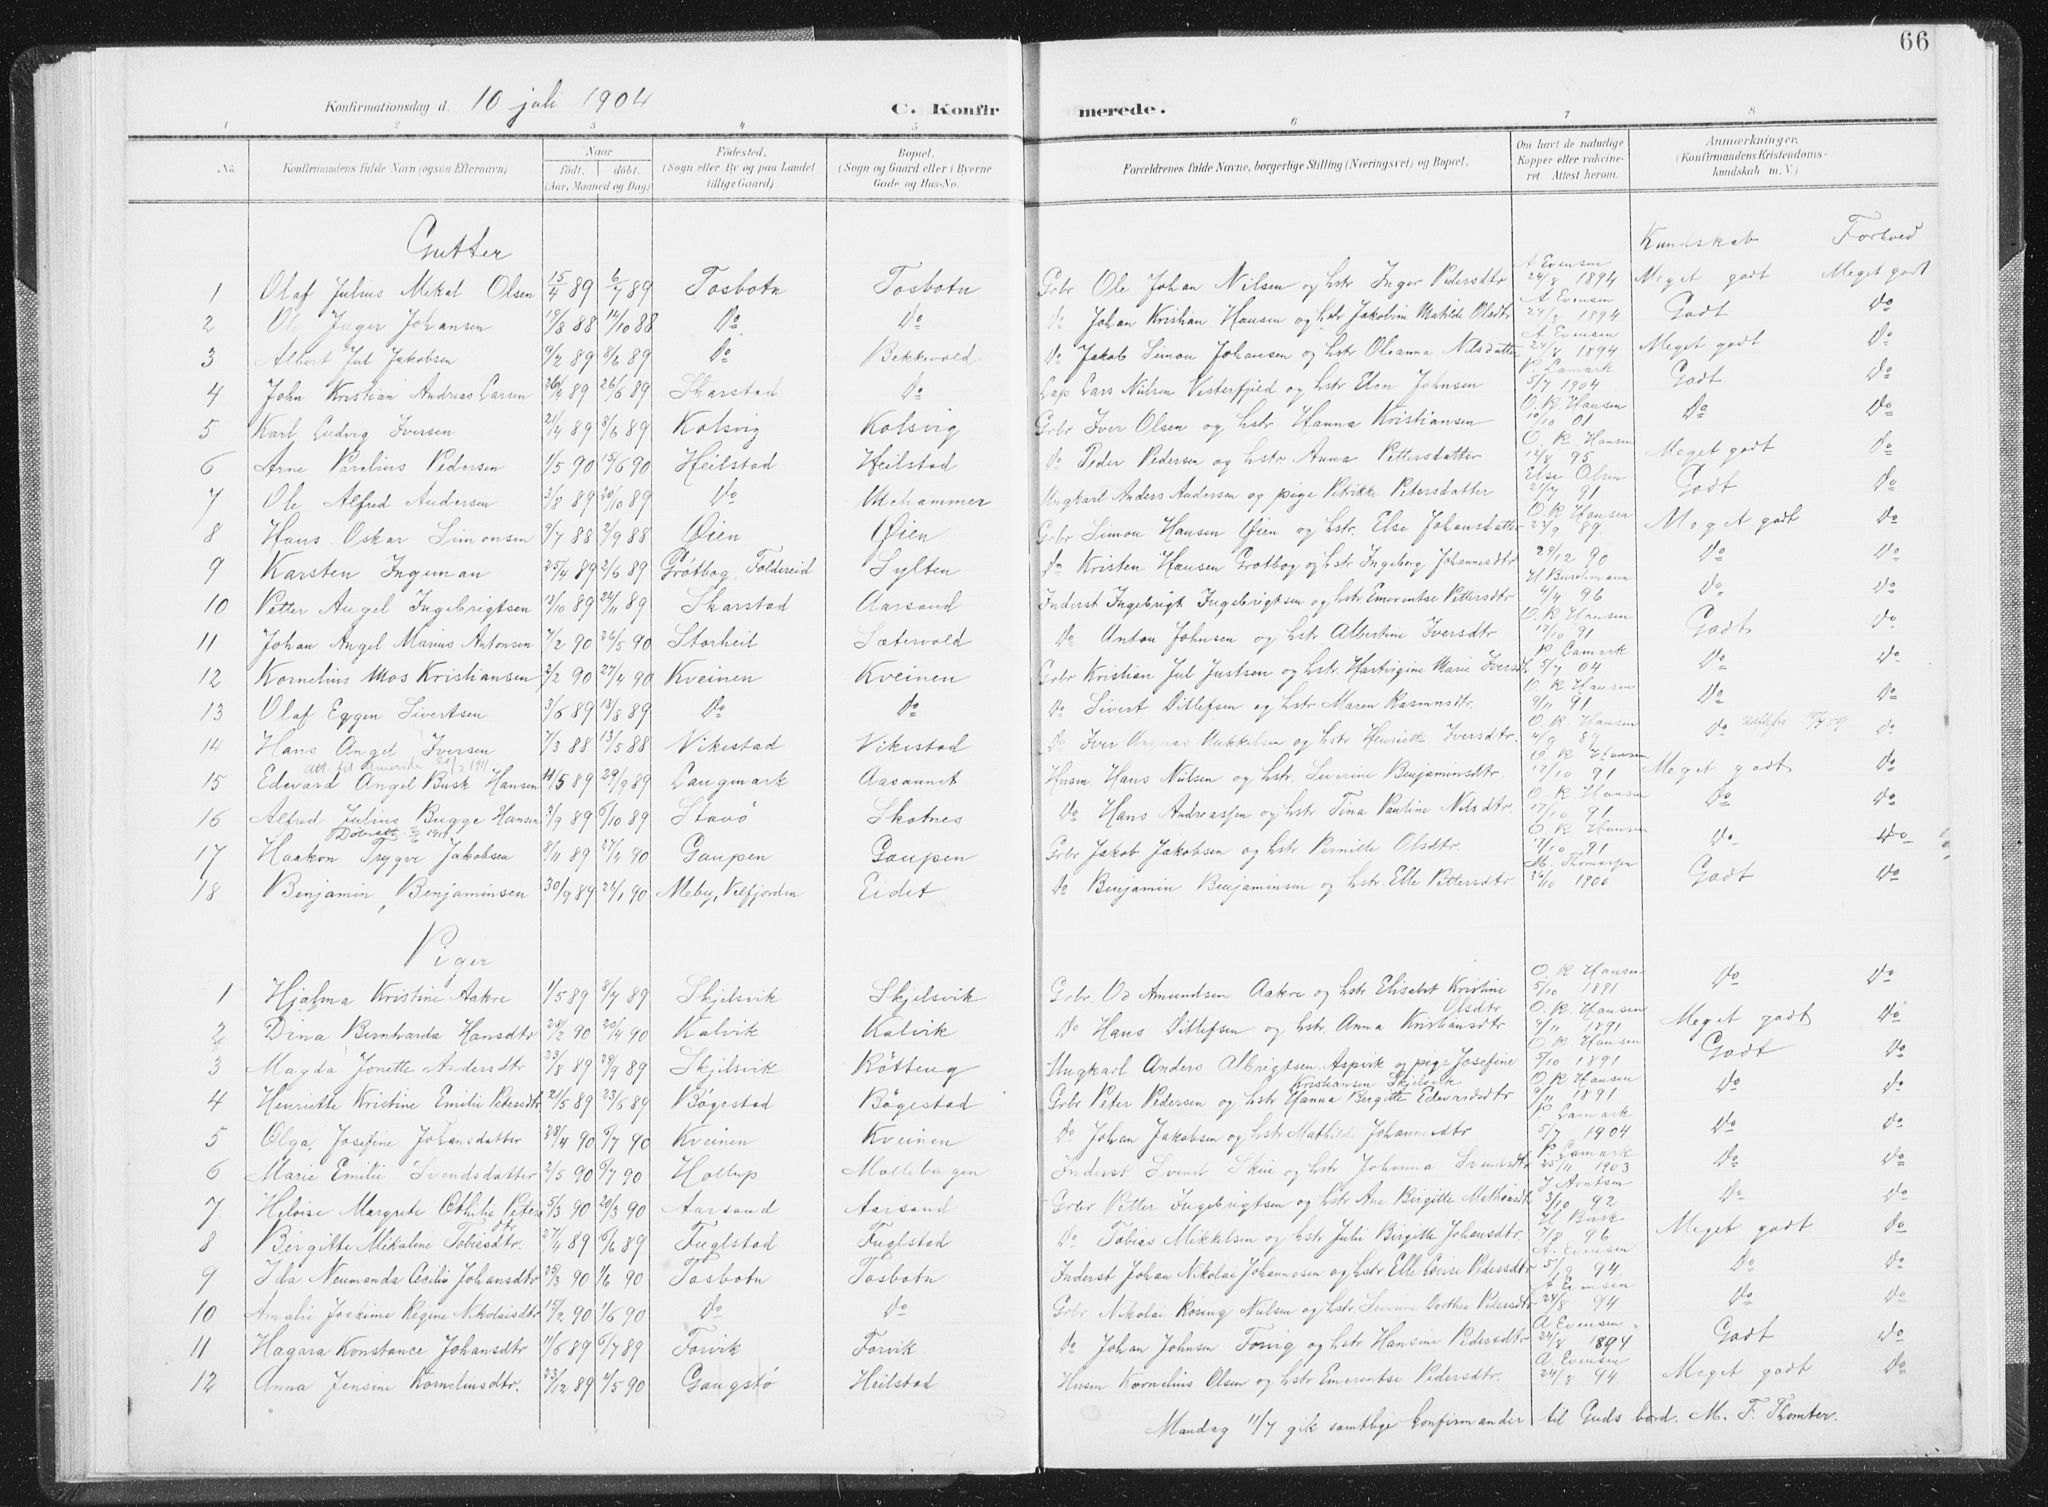 66
Konfirmationsdag d. 10 juli 1904 C. Konfirmerede.
1 2 3 4 5 6 7 8
No. Konfirmandens fulde Navn (ogsaa Efternavn) Naar födt. döbt. (Aar, Maaned og Dag) Födested. (Sogn eller By og paa Landet tillige Gaard) Bopæl. (Sogn og Gaard eller i Byerne Gade og Hus-No. Forældrenes fulde Navne, borgerlige Stilling (Næringsvei) og Bopæl. Om havt de naturlige Kopper eller vakcineret. Attest herom. Anmærkninger. (Konfirmandens Kristendomskundskab m. V.)
Gutter Kundskab Forhold
1 Olaf Julius Mikal Olsen 15/4 89 6/7 89 Tosbotn Tosbotn Grbr Ole Johan Nilsen og hstr Inger Pedersdtr A Evensen 24/8 1894 Meget godt Meget godt
2 Ol Inger Johansen 19/8 88 14/10 88 Do Do Do Johan Kristian Hansen og hstr Jakobine Matilde Olsdtr A Evensen 24/8 1894 Godt Do
3 Albert Jul Jakobsen 9/2 89 8/6 89 Do Bekkevold Do Jakob Simon Johansen og hstr Oleanna Nilsdatter A Evensen 24/8 1894 Meget godt Do
4 John Kristian Andreas Larsen 26/4 89 26/6 89 Skarstad Do Lap Lars Nilsen Vesterfjeld og hstr Elen Johnsen P. Lamark 5/7 1904 Godt Do
5 Karl Ludvig Iversen 21/4 89 8/6 89 Kolsvig Kolsvig Grbr Iver Olsen og hstr Hanna Kristiansen O. R. Hansen 10/10 01 Do Do
6 Arne Parelius Pedersen 1/5 90 15/6 90 Heilstad Heilstad Do Peder Pedersen og hstr Anna Pettersdatter O. R. Hansen 12/8 95 Meget godt Do
7 Ole Alfred Andersen 3/8 89 20/10 89 Do Utehammer Ungkarl Anders Andersen og pige Petrikke Petersdatter Else Olsen 27/7 91 Godt Do
8 Hans Oskar Simonsen 9/7 88 2/9 88 Øien Øien Grbr Simon Hansen Øien og hstr. Else Johansdatter O. R. Hansen 23/9 89. Meget godt Do
9 Karsten Ingeman 25/4 89 2/6 89 Grøtbog, Foldereid Sylten Do Kristen Hansen Grøtbog og hstr Ingeborg Johannesdtr 29/12 90 Do Do
10 Petter Angel Ingebrigtsen 12/10 89 24/11 89 Skarstad Aarsand Inderst Ingebrigt Ingebrigtsen og hstr Emerentse Pettersdtr H Buschmann 4/4 96 Do Do
11 Johan Angel Marius Antonsen 7/2 90 26/5 90 Storheil Sætervold Do Anton Johnsen og hstr Albertine Iversdtr O. R. Hansen 17/10 91 Godt Do
12 Kornelius Mos Kristiansen 2/2 90 27/4 90 Kveinen Kveinen Grbr Kristian Jul Justsen og hstr Hartvigine Marie Iversdtr P. Lamark 5/7 04 Do Do
13 Olaf Eggen Sivertsen 3/6 89 18/8 89 Do Do Do Sivert Ditlefsen og hstr Maren Rasmusdtr. O. R. Hansen 9/11 91 Do Do
14 Hans Angel Iversen 7/3 88 13/5 88 Vikestad Vikestad Do Iver Mikkelsen og hstr Henriette Iversdtr. O. R. Hansen 4/9 89 Do Do
Att. til Amerika 20/2 1911
15 Edevard Angel Busk Hansen 11/5 89 29/9 89 Laugmark Aasaunet Husm. Hans Nilsen og hstr. Severine Benjaminsdtr. O. R. Hansen 17/10 91 Meget godt Do
16 Alfred Julius Bugge Hansen 3/9 89 6/10 89 Stavø Skotnes Do Hans Andreassen og hstr Tina Pauline Nilsdtr. O. R. Hansen 17/10 91 Do Do
Dobratt 2/6 1919
17 Haakon Trygve Jakobsen 8/11 89 27/4 90 Gaupen Gaupen Grbr Jakob Jakobsen og hstr Pernille Olsdtr. O R Hansen 17/10 91 Do Do
18 Benjamin Benjaminsen 30/9 89 26/1 90 Meby, Velfjorden Eidet Do Benjamin Benjaminsen og hstr. Elle Pettersdtr M. Thomassen 26/10 1900 Godt Do
Piger
1 Hjalma Kristine Aakre 1/5 89 8/7 89 Skjelsvik Skjelsvik Grbr. Od Amundsen Aakre og hstr Elisabet Kristine Olsdtr O. R Hansen 5/10 1891 Do Do
2 Dina Bernharda Hansdtr 28/2 90 20/4 90 Kalvik Kalvik Do Hans Ditlefsen og hstr. Anna Kristiansdtr O. R. Hansen 9/11 1891 Meget godt Do
3 Magda Jonette Andersdtr 23/8 89 29/9 89 Skjelsvik Røtteng Ungkarl Anders Albrigtsen Aspvik og pige Josefine Kristiansen Skjelsvik O. R. Hansen 5/10 1891 Godt Do
4 Henriette Kristine Emilie Petersdtr 21/5 89 23/6 89 Bøgestad Bøgestad Grbr Peter Pedersen og hstr Hanna Birgitte Edvardsdtr O. R Hansen 9/11 1891 Do Do
5 Olga Josefine Johansdatter 28/4 90 6/7 90 Kveinen Kveinen Do Johan Jakobsen og hstr Mathilde Johannesdtr P. Lamark 5/7 1904 Do Do
6 Marie Emilie Svendsdatter 2/5 90 6/7 90 Hollup Mollebogen Inderst Svend Skie og hstr Johanna Svendsdtr P. Lamark 25/11 1903 Do Do
7 Heloise Margrete Othilie Petersdtr 5/3 90 20/3 90 Aarsand Aarsand Grbr Petter Ingebrigtsen og hstr Ane Birgitte Mathiasdtr J Arntsen 3/10 92 Do Do
8 Birgitte Mikaline Tobiasdtr. 27/4 89 6/6 89 Fuglstad Fuglstad Do Tobias Mikkelsen og hstr Julie Birgitte Johansdtr. H. Busk 7/8 96 Meget godt Do
9 Ida Neumanda Cecilie Johansdtr 25/3 90 1/6 90 Tosbotn Tosbotn Inderst Johan Nikolai Johannesen og hstr Elle Lovise Pedersdtr A. Evensen 5/9 94. Do Do
10 Amalie Joakime Regine Nikolaisdtr 15/2 90 1/6 90 Do Do Grbr Nikolai Rosing Nielsen og hstr. Severine Dorthea Pedersdtr A Evensen 24/8 94 Do Do
11 Hagara Konstance Johansdtr 11/6 89 6/7 89 Forvik Forvik Do Johan Johnsen Forvig og hstr Hansine Pedersdtr A Evensen 24/8 1894 Godt Do
12 Anna Jensine Korneliusdtr. 23/12 89 4/5 90 Gaugstø Heilstad Husm Kornelius Olsen og hstr Emerentse Pedersdtr. A. Evensen 24/8 94. Meget godt Do
Mandag 11/7 gik samtlige konfirmander til Guds bord. M. F. Thomter.